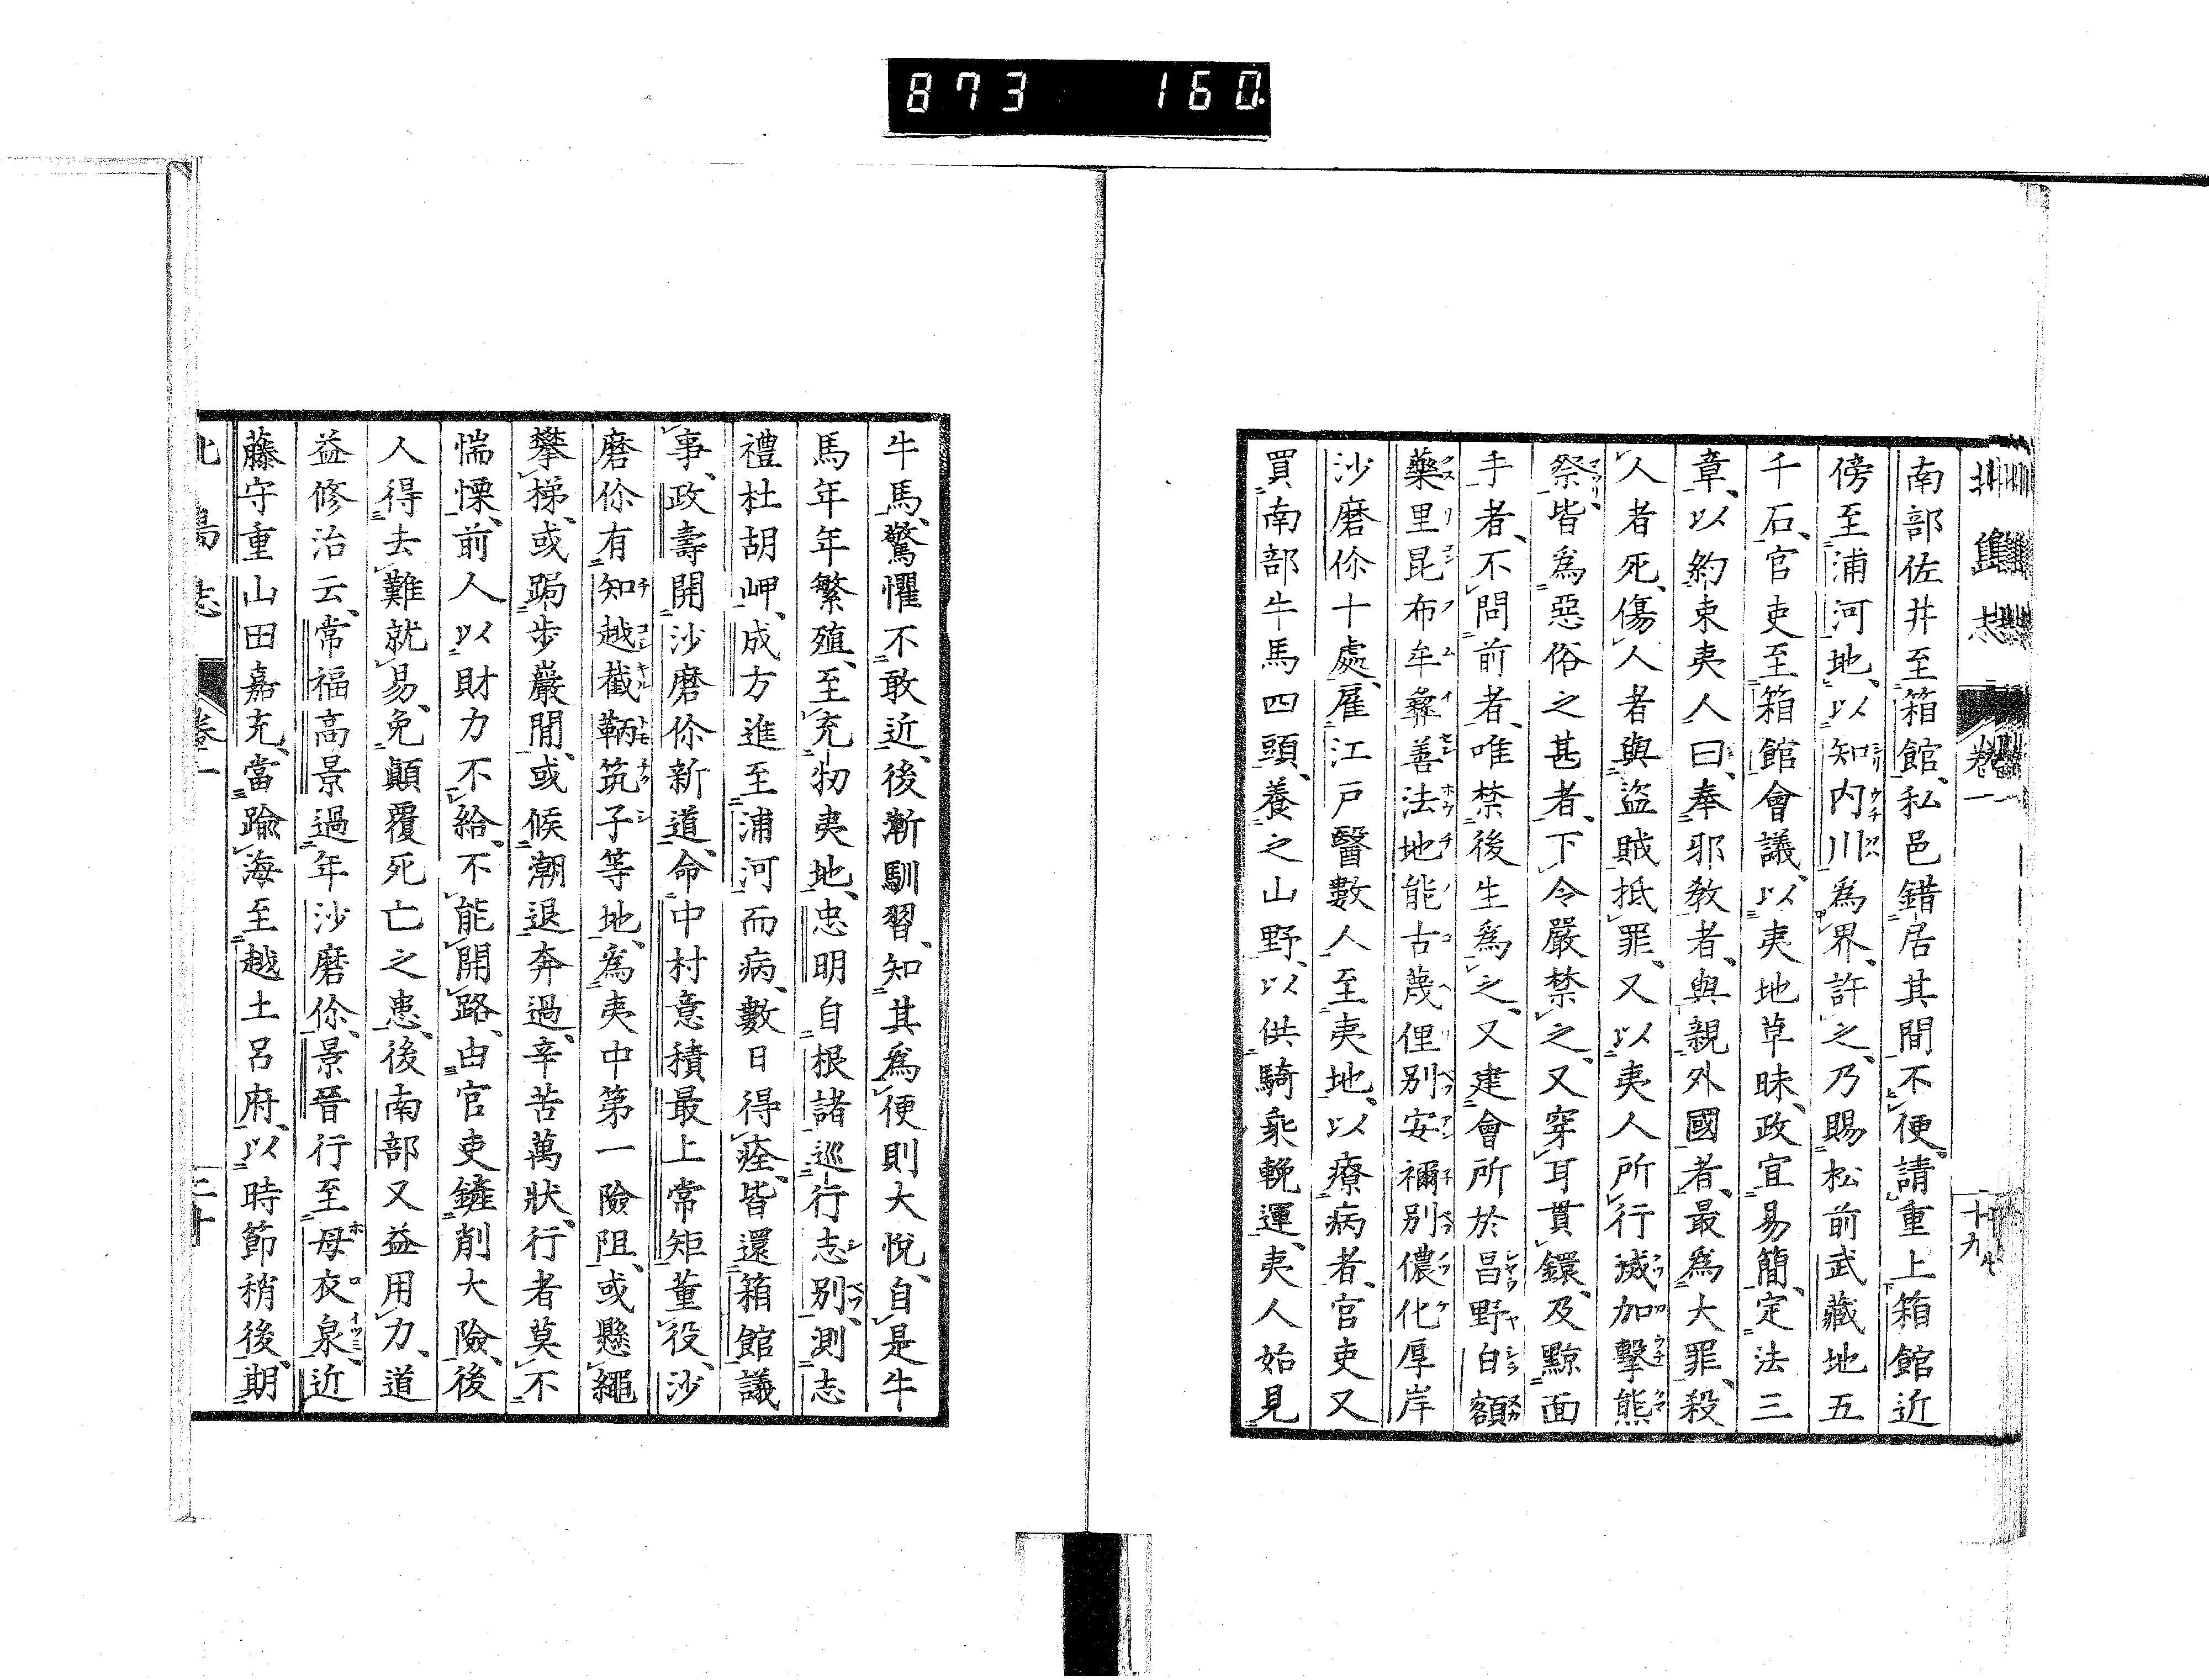 873 160
北島志 卷一 十九
南部佐井至箱館、私邑錯居其間不便、請重上箱館近
傍至浦河地、以知内川為界、許之、乃賜松前武藏地五
千石、官吏至箱館會議、以夷地草昧、政宜易簡、定法三
章、以約束夷人曰、奉邪教者、與親外國者、最為大罪、殺
人者死、傷人者與盜賊抵罪、又以夷人所行滅加擊熊
祭、皆為惡俗之甚者、下令嚴禁之、又穿耳貫鐶、及黥面
手者、不問前者、唯禁後生為之、又建會所於昌野白額
藥里昆布牟彝善法地能古蔑俚别安禰别儂化厚岸
沙磨伱十處、雇江戸醫數人至夷地、以療病者、官吏又
買南部牛馬四頭、養之山野、以供騎乘輓運、夷人始見
牛馬、驚懼不敢近、後漸馴習、知其為便則大悅、自是牛
馬年年繁殖、至充牣夷地、忠明自根諸巡行志别、測志
禮杜胡岬、成方進至浦河而病、數日得痊、皆還箱館議
事、政壽開沙磨伱新道、命中村意積最上常矩董役、沙
磨伱有知越截鞆筑子等地、為夷中第一險阻、或懸繩
攀梯、或跼步巖間、或候潮退奔過、辛苦萬狀、行者莫不
惴慄、前人以財力不給、不能開路、由官吏鏟削大險、後
人得去難就易、免顛覆死亡之患、後南部又益用力、道
益修治云、常福高景過年沙磨伱、景晉行至母衣泉、近
藤守重山田嘉充、當踰海至越土呂府、以時節稍後、期
北島志 卷一 二十